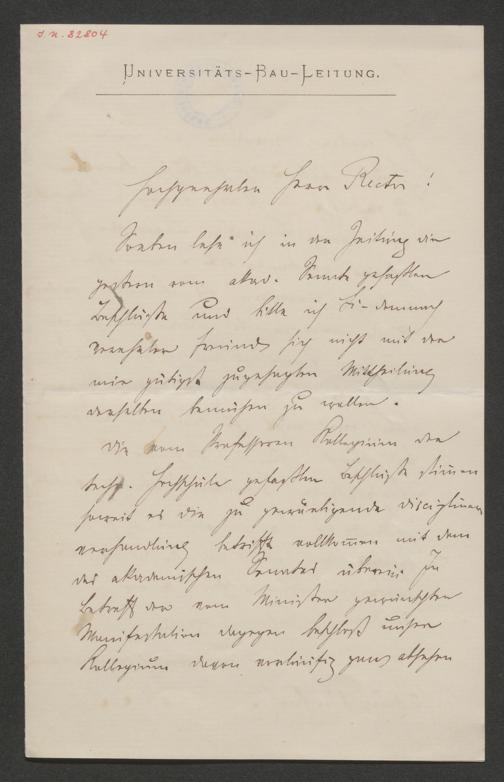 J.N. 32804
UNIVERSITÄTS-BAU-LEITUNG.
Hochverehrter Herr Rector!
Soeben lese ich in der Zeitung die
gestern vom akad. Senate gefaßten
Beschlüsse und bitte ich Sie demnach
verehrter Freund sich nicht mit der
mir gütigst zugesagten Mittheilung
derselben bemühen zu wollen.
Die vom Professoren Kollegium der
techn. Hochschule gefaßten Beschlüsse stimmen
soweit es die zu gewärtigende disciplinar
verhandlung betrifft vollkommen mit dem
des akademischen Senates überein. In
Betreff der vom Minister gewünschten
Manifestation dagegen beschloß unser
Kollegium davon vorläufig ganz absehen